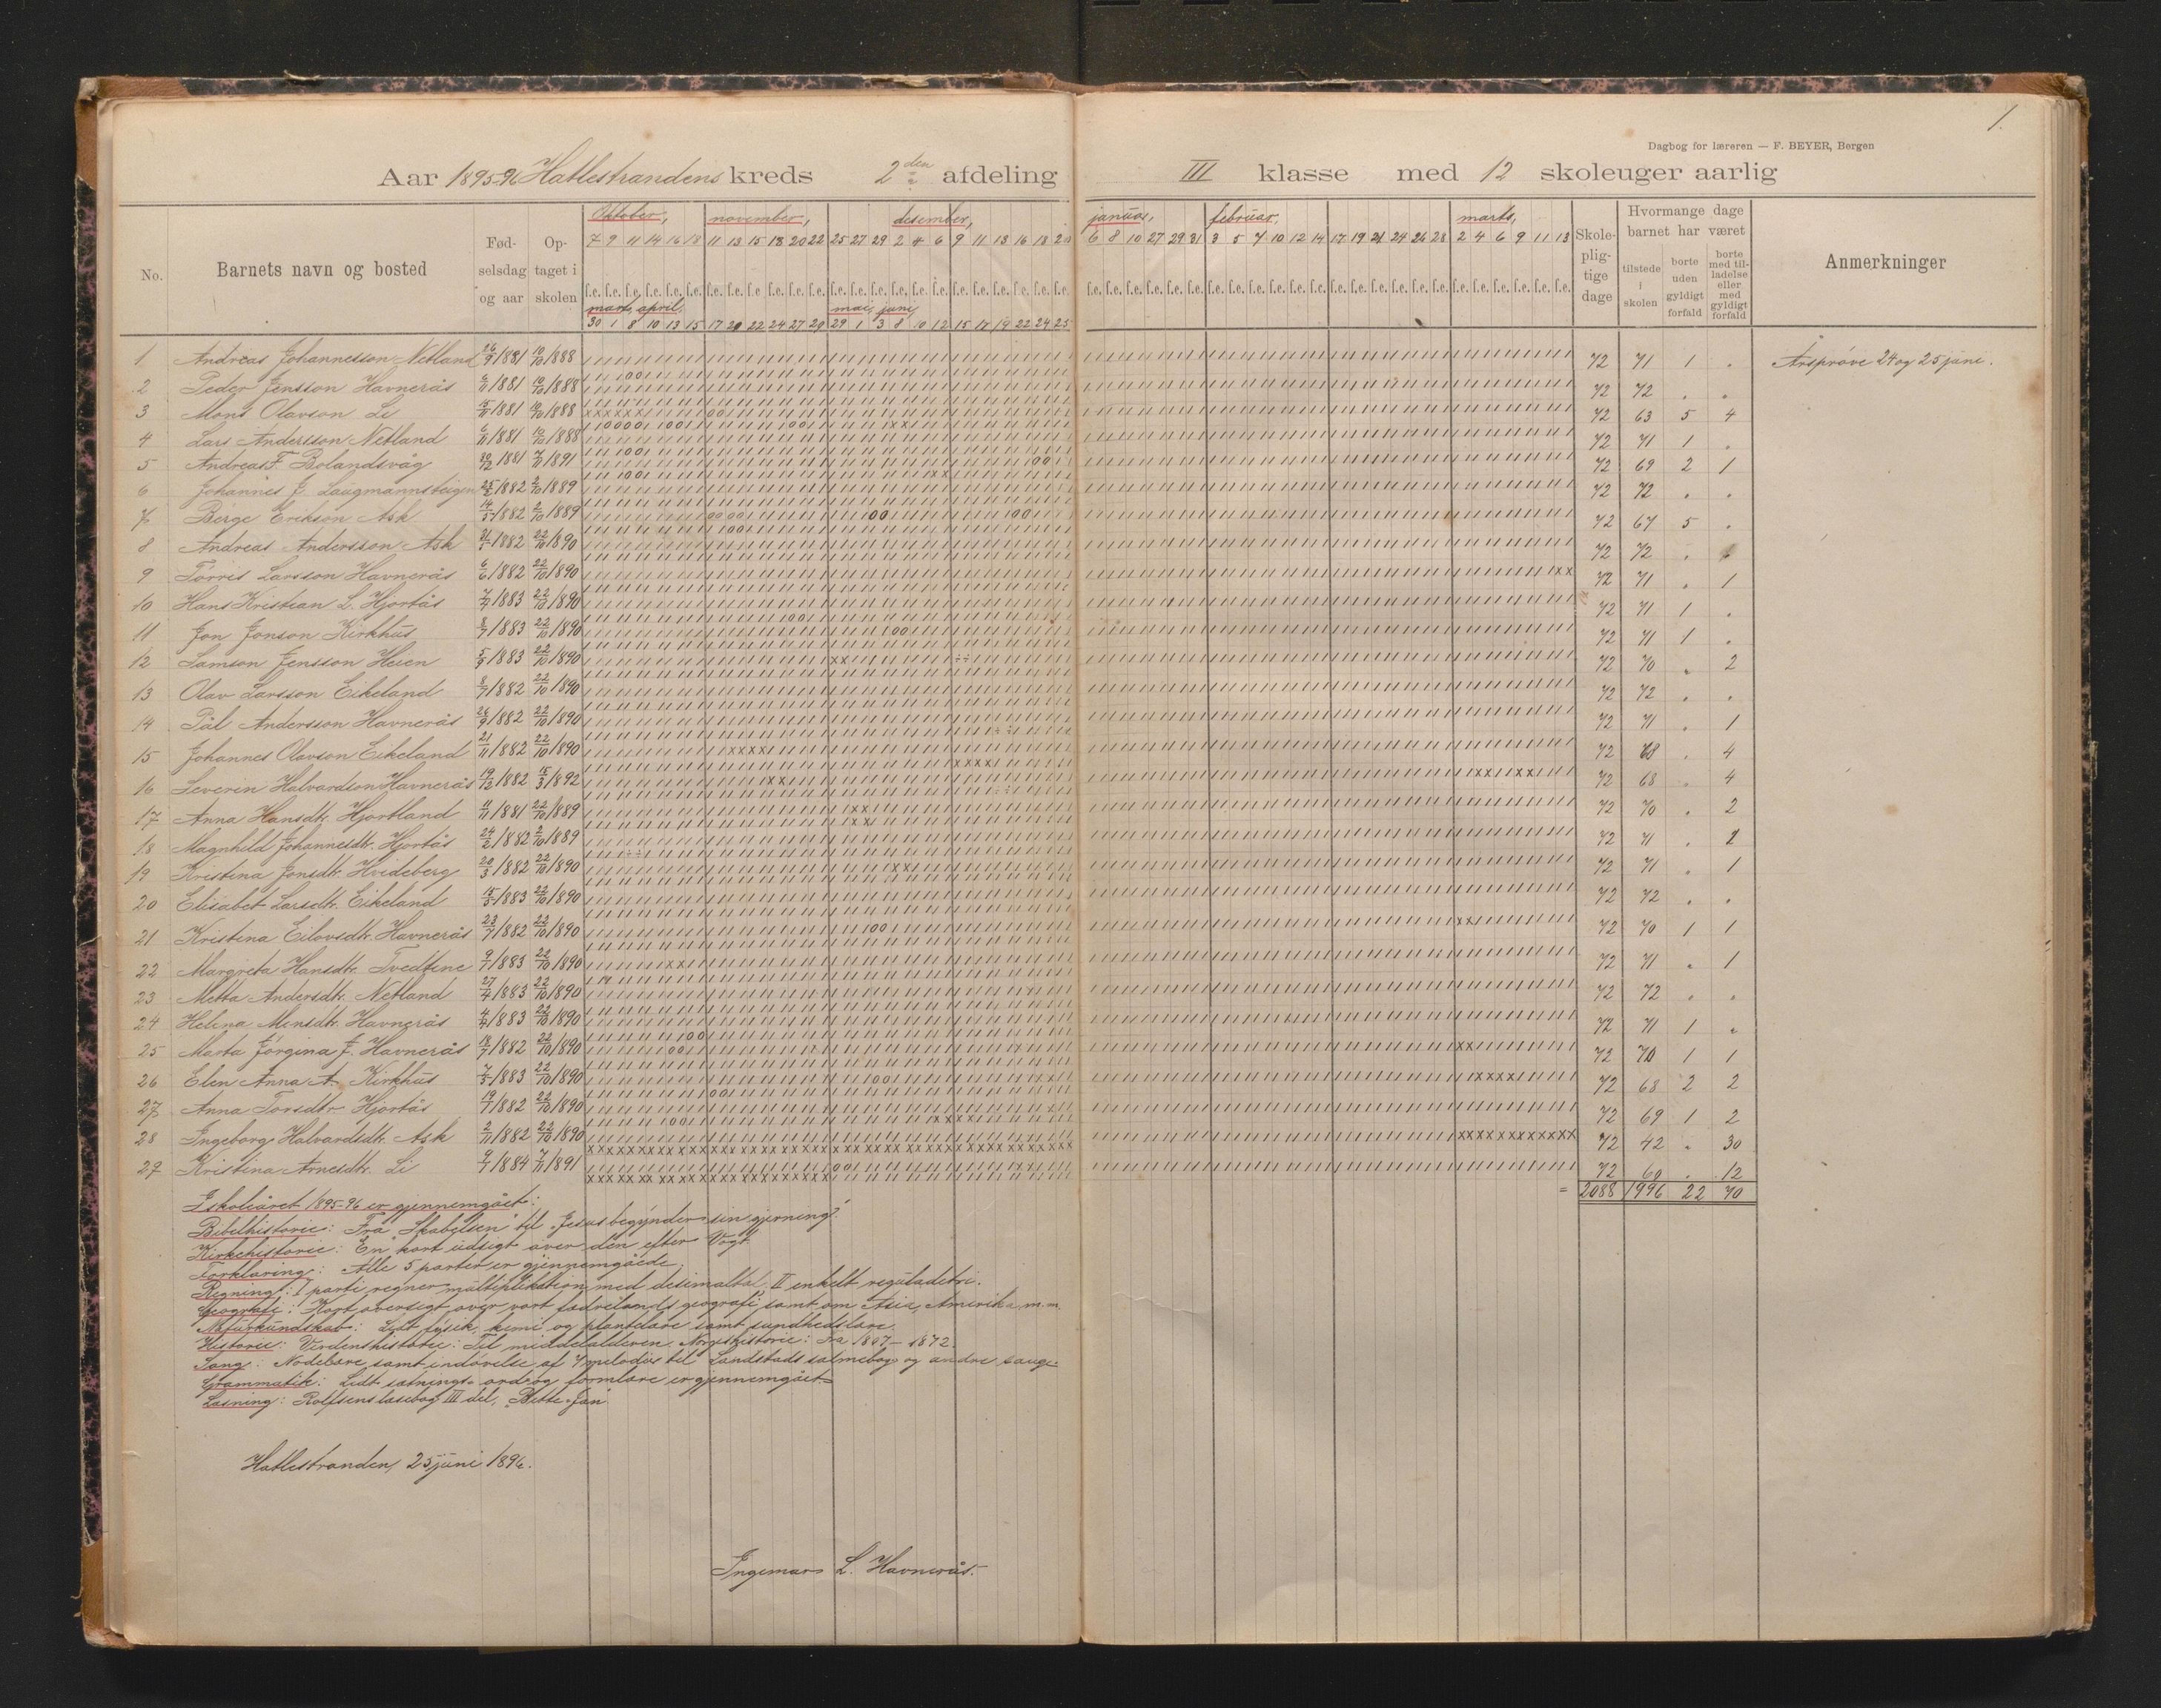 1.
Dagbog for læreren — F. BEYER, Bergen
Aar 1895-96 Hatlestrandens kreds 2den afdeling III klasse med 12 skoleuger aarlig
No. Barnets navn og bosted Fødselsdag og aar Optaget i skolen Skolepligtige dage Hvormange dage barnet har været tilstede i skolen borte uden gyldigt forfald borte med tilladelse eller med gyldigt forfald Anmerkninger
Oktober, november, desember, januar, februar, marts,
7 9 11 14 16 18 11 13 15 18 20 22 25 27 29 2 4 6 9 11 13 16 18 20 6 8 10 27 29 31 3 5 7 10 12 14 17 19 21 24 26 28 2 4 6 9 11 13
f.e. f.e. f.e. f.e. f.e. f.e. f.e. f.e. f.e. f.e. f.e. f.e. f.e. f.e. f.e. f.e. f.e. f.e. f.e. f.e. f.e. f.e. f.e. f.e. f.e. f.e. f.e. f.e. f.e. f.e. f.e. f.e. f.e. f.e. f.e. f.e. f.e. f.e. f.e. f.e. f.e. f.e. f.e. f.e. f.e. f.e. f.e. f.e.
mars, april, mai, juni,
30 1 8 10 13 15 17 20 22 24 27 29 29 1 3 8 10 12 15 17 19 22 24 25
1 Andreas Johannesson Netland 26/9 1881 10/10 1888 72 71 1 " Årsprøve 24 og 25 juni.
2 Peder Jensson Havnerås 6/11 1881 10/10 1888 72 72 " "
3 Mons Olavson Li 15/11 1881 10/10 1888 72 63 5 4
4 Lars Andersson Netland 6/11 1881 10/10 1888 72 71 1 "
5 Andreas F. Bolandsvåg 1881 7/11 1891 72 69 2 1
6 Johannes J. Laugmannsteigen 25/2 1882 2/10 1889 72 72 " "
7 Berge Erikson Ask 14/5 1882 2/10 1889 72 67 5 "
8 Andreas Andersson Ask 1882 22/10 1890 72 72 "
9 Torris Larsson Havnerås 6/6 1882 22/10 1890 72 71 " 1
10 Hans Kristian L. Hjortås 1883 22/10 1890 72 71 1 "
11 Jon Jonson Kirkhus 8/7 1883 22/10 1890 72 71 1 "
12 Samson Jensson Heien 1883 22/10 1890 72 70 " 2
13 Olav Larsson Eikeland 8/7 1882 22/10 1890 72 72 " "
14 Pål Andersson Havnerås 26/9 1882 22/10 1890 72 71 " 1
15 Johannes Olavson Eikeland 21/11 1882 22/10 1890 72 68 " 4
16 Severin Halvardson Havnerås 19/12 1882 15/3 1892 72 68 " 4
17 Anna Hansdtr. Hjortland 1881 22/10 1889 72 70 " 2
18 Magnhild Johannesdtr. Hjortås 24/2 1882 2/10 1889 72 71 "
19 Kristina Jonsdtr. Hvideberg 20/3 1882 22/10 1890 72 71 " 1
20 Elisabet Larsdtr. Eikeland 15/3 1883 22/10 1890 72 72 " "
21 Kristina Eilovsdtr. Havnerås 23/7 1882 22/10 1890 72 70 1 1
22 Margreta Hansdtr. Tvedtene 9/1 1883 22/10 1890 72 71 " 1
23 Metta Andersdtr. Netland 27/4 1883 22/10 1890 72 72 " "
24 Helena Monsdtr. Havnerås 1883 22/10 1890 72 71 1 "
25 Marta Jørgina J. Havnerås 18/7 1882 22/10 1890 72 70 1 1
26 Elen Anna A. Kirkhus 1883 22/10 1890 72 68 2 2
27 Anna Torsdtr. Hjortås 19/7 1882 22/10 1890 72 69 1 2
28 Ingeborg Halvardsdtr. Ask 2/11 1882 22/10 1890 72 42 " 30
29 Kristina Arnesdtr. Li 1884 7/11 1891 72 60 " 12
= 2088 1996 22 70
I skoleåret 1895-96 er gjennemgået:
Bibelhistorie: Fra "Skabelsen" til "Jesus begynder sin gjerning".
Kirkehistorie: En kort udsigt over den efter Vogt.
Forklaring: Alle 5 parter er gjennemgåede.
Regning: I parti regner multiplikation med desimaltal, II enkelt reguladetri.
Geografi: Kort oversigt over vort fædrelands geografi, samt om Asia, Amerika m.m.
Naturkundskab: Lidt fysik, kemi og plantelære samt sundhedslære.
Historie: Verdenshistorie: Til middelalderen. Norgeshistorie: Fra 1807 - 1872.
Sang: Nodelære samt indøvelse af 4 melodier til Landstads salmebog og andre sange.
Grammatik: Lidt sætnings- ord- og formlære er gjennemgået.
Læsning: Rolfsens læsebog III del,
Hatlestranden, 25 juni 1896.
Ingemar L. Havnerås.